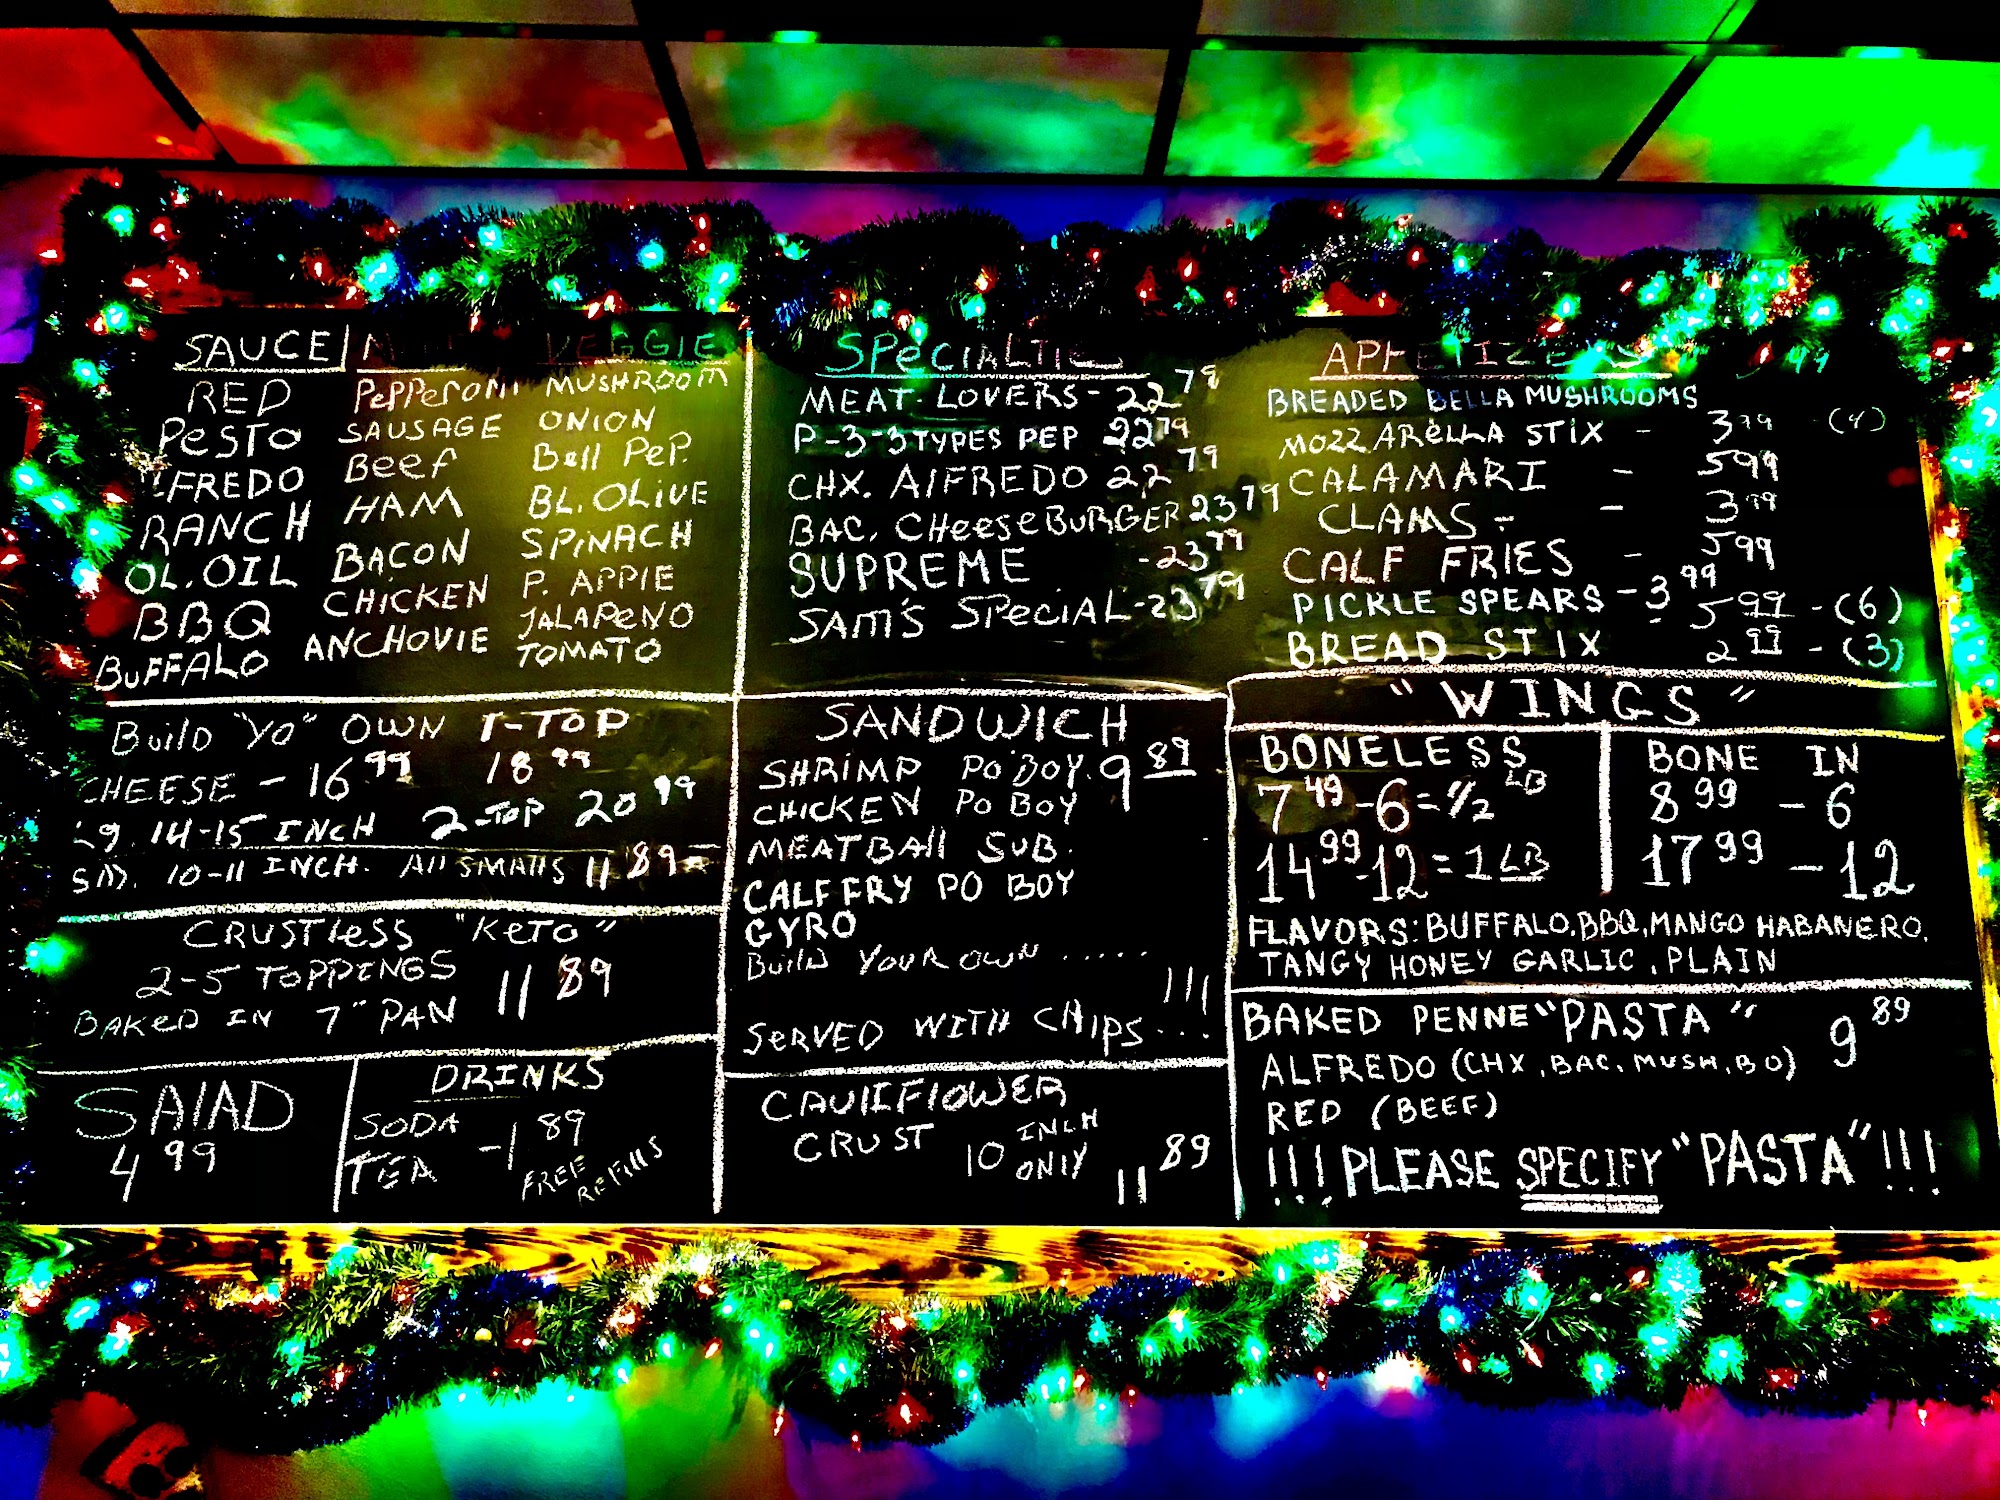 SAUCE VEGGIE
RED PePPeRoNi MUSHROOM
PesTo SAUSAGE ONION
FREDO Beef Bell PeP.
RANCH HAM BL. OLiVE
OL. OIL BACON SPiNACH
BBQ CHiCKEN P. APPIE
BUFFALO ANCHOVIE JALAPeNO
TOMATO
Build "YO" OWN 1-TOP
CHEESE - 16 99 18 99
14-15 INCH 2-TOP 20 99
SM. 10-11 INCH. All SMAllS 11 89
CRUSTless "KeTo"
2-5 TOPPINGS 11 89
BAKeD IN 7" PAN
SAlAD
4 99
DRINKS
SODA
TEA -1 89
FREE REFillS
SPeCIALTIES
MEAT-LOVERS - 22 79
P-3-3 TYPES PEP 22 79
CHX. AlFREDO 22 79
BAC. CHeeseBURGER 23 79
SUPREME - 23 79
SAM'S SPeCIAL - 23 79
SANDWICH
SHRiMP PO'BOY. 9 89
CHICKEN PO BOY
MEATBAll SUB.
CALF FRY PO BOY
GYRO
Build YOUR OWN .....
SeRVED WITH CHIPS...!!!
CAUlIFlOWER
CRUST 10 INCH ONlY 11 89
APPETIZERS
BREADED BELLA MUSHROOMS 99
MOZZARELLA STIX - 3 99 - (4)
CALAMARI - 5 99
CLAMS - - 3 99
CALF FRIES - 5 99
PICKLE SPEARS - 3 99 5 99 - (6)
BREAD STIX 2 99 - (3)
"WINGS"
BONELESS
7 49 - 6 = 1/2 LB
14 99 - 12 = 1 LB
BONE IN
8 99 - 6
17 99 - 12
FLAVORS: BUFFALO, BBQ, MANGO HABANERO,
TANGY HONEY GARLIC, PLAIN
BAKED PENNE "PASTA" 9 89
ALFREDO (CHX, BAC, MUSH, BO)
RED (BEEF)
!!! PLEASE SPECIFY "PASTA" !!!